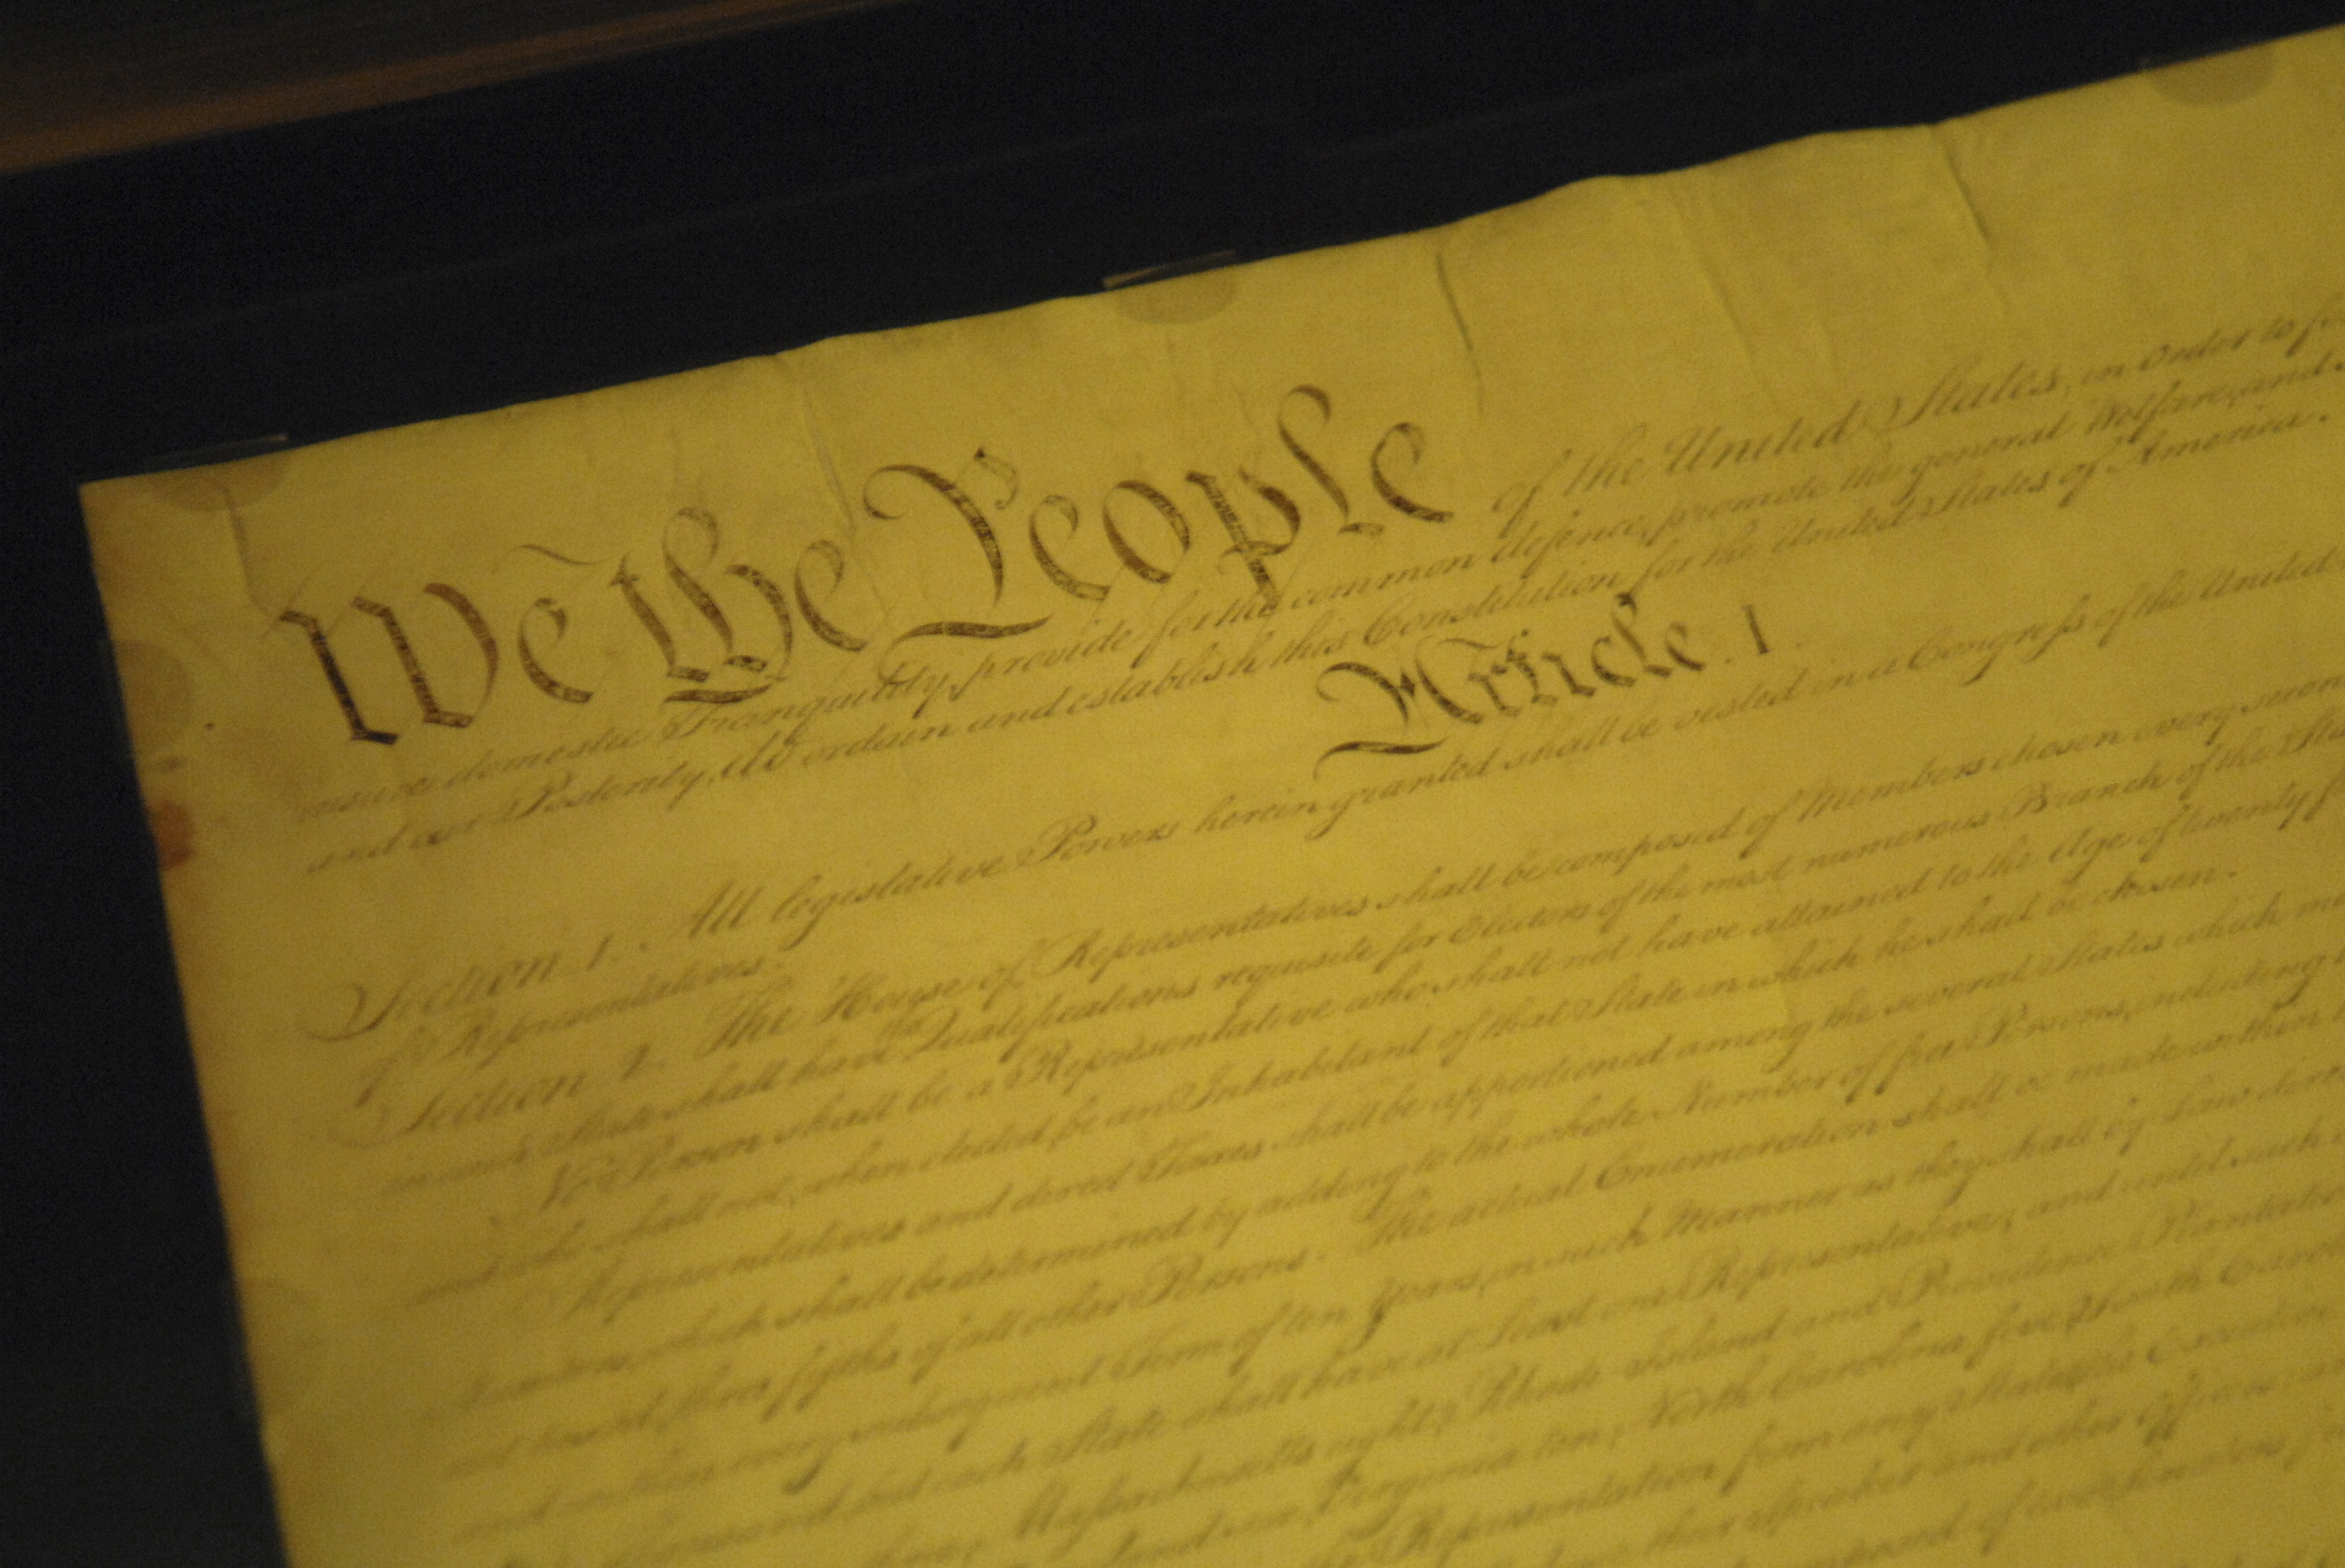 We the People of the United States, in Order to
insure domestic Tranquility, provide for the common defence, promote the general Welfare, and
and our Posterity, do ordain and establish this Constitution for the United States of America.
Article. I
Section 1. All legislative Powers herein granted shall be vested in a Congress of the United
of Representatives.
Section 2. The House of Representatives shall be composed of Members chosen every second
in each State shall have the Qualifications requisite for Electors of the most numerous Branch of the State
No Person shall be a Representative who shall not have attained to the Age of twenty
and who shall not, when elected, be an Inhabitant of that State in which he shall be chosen.
Representatives and direct Taxes shall be apportioned among the several States which
Numbers, which shall be determined by adding to the whole Number of free Persons, including
not taxed, three fifths of all other Persons. The actual Enumeration shall be made within
and within every subsequent Term of ten Years, in such Manner as they shall by Law direct
thousand, but each State shall have at Least one Representative; and until such
three, Massachusetts eight, Rhode-Island and Providence Plantations
Virginia ten, North Carolina five, South
Representation from any State, the Executive
their Speaker and other Officers;
composed of two Senators